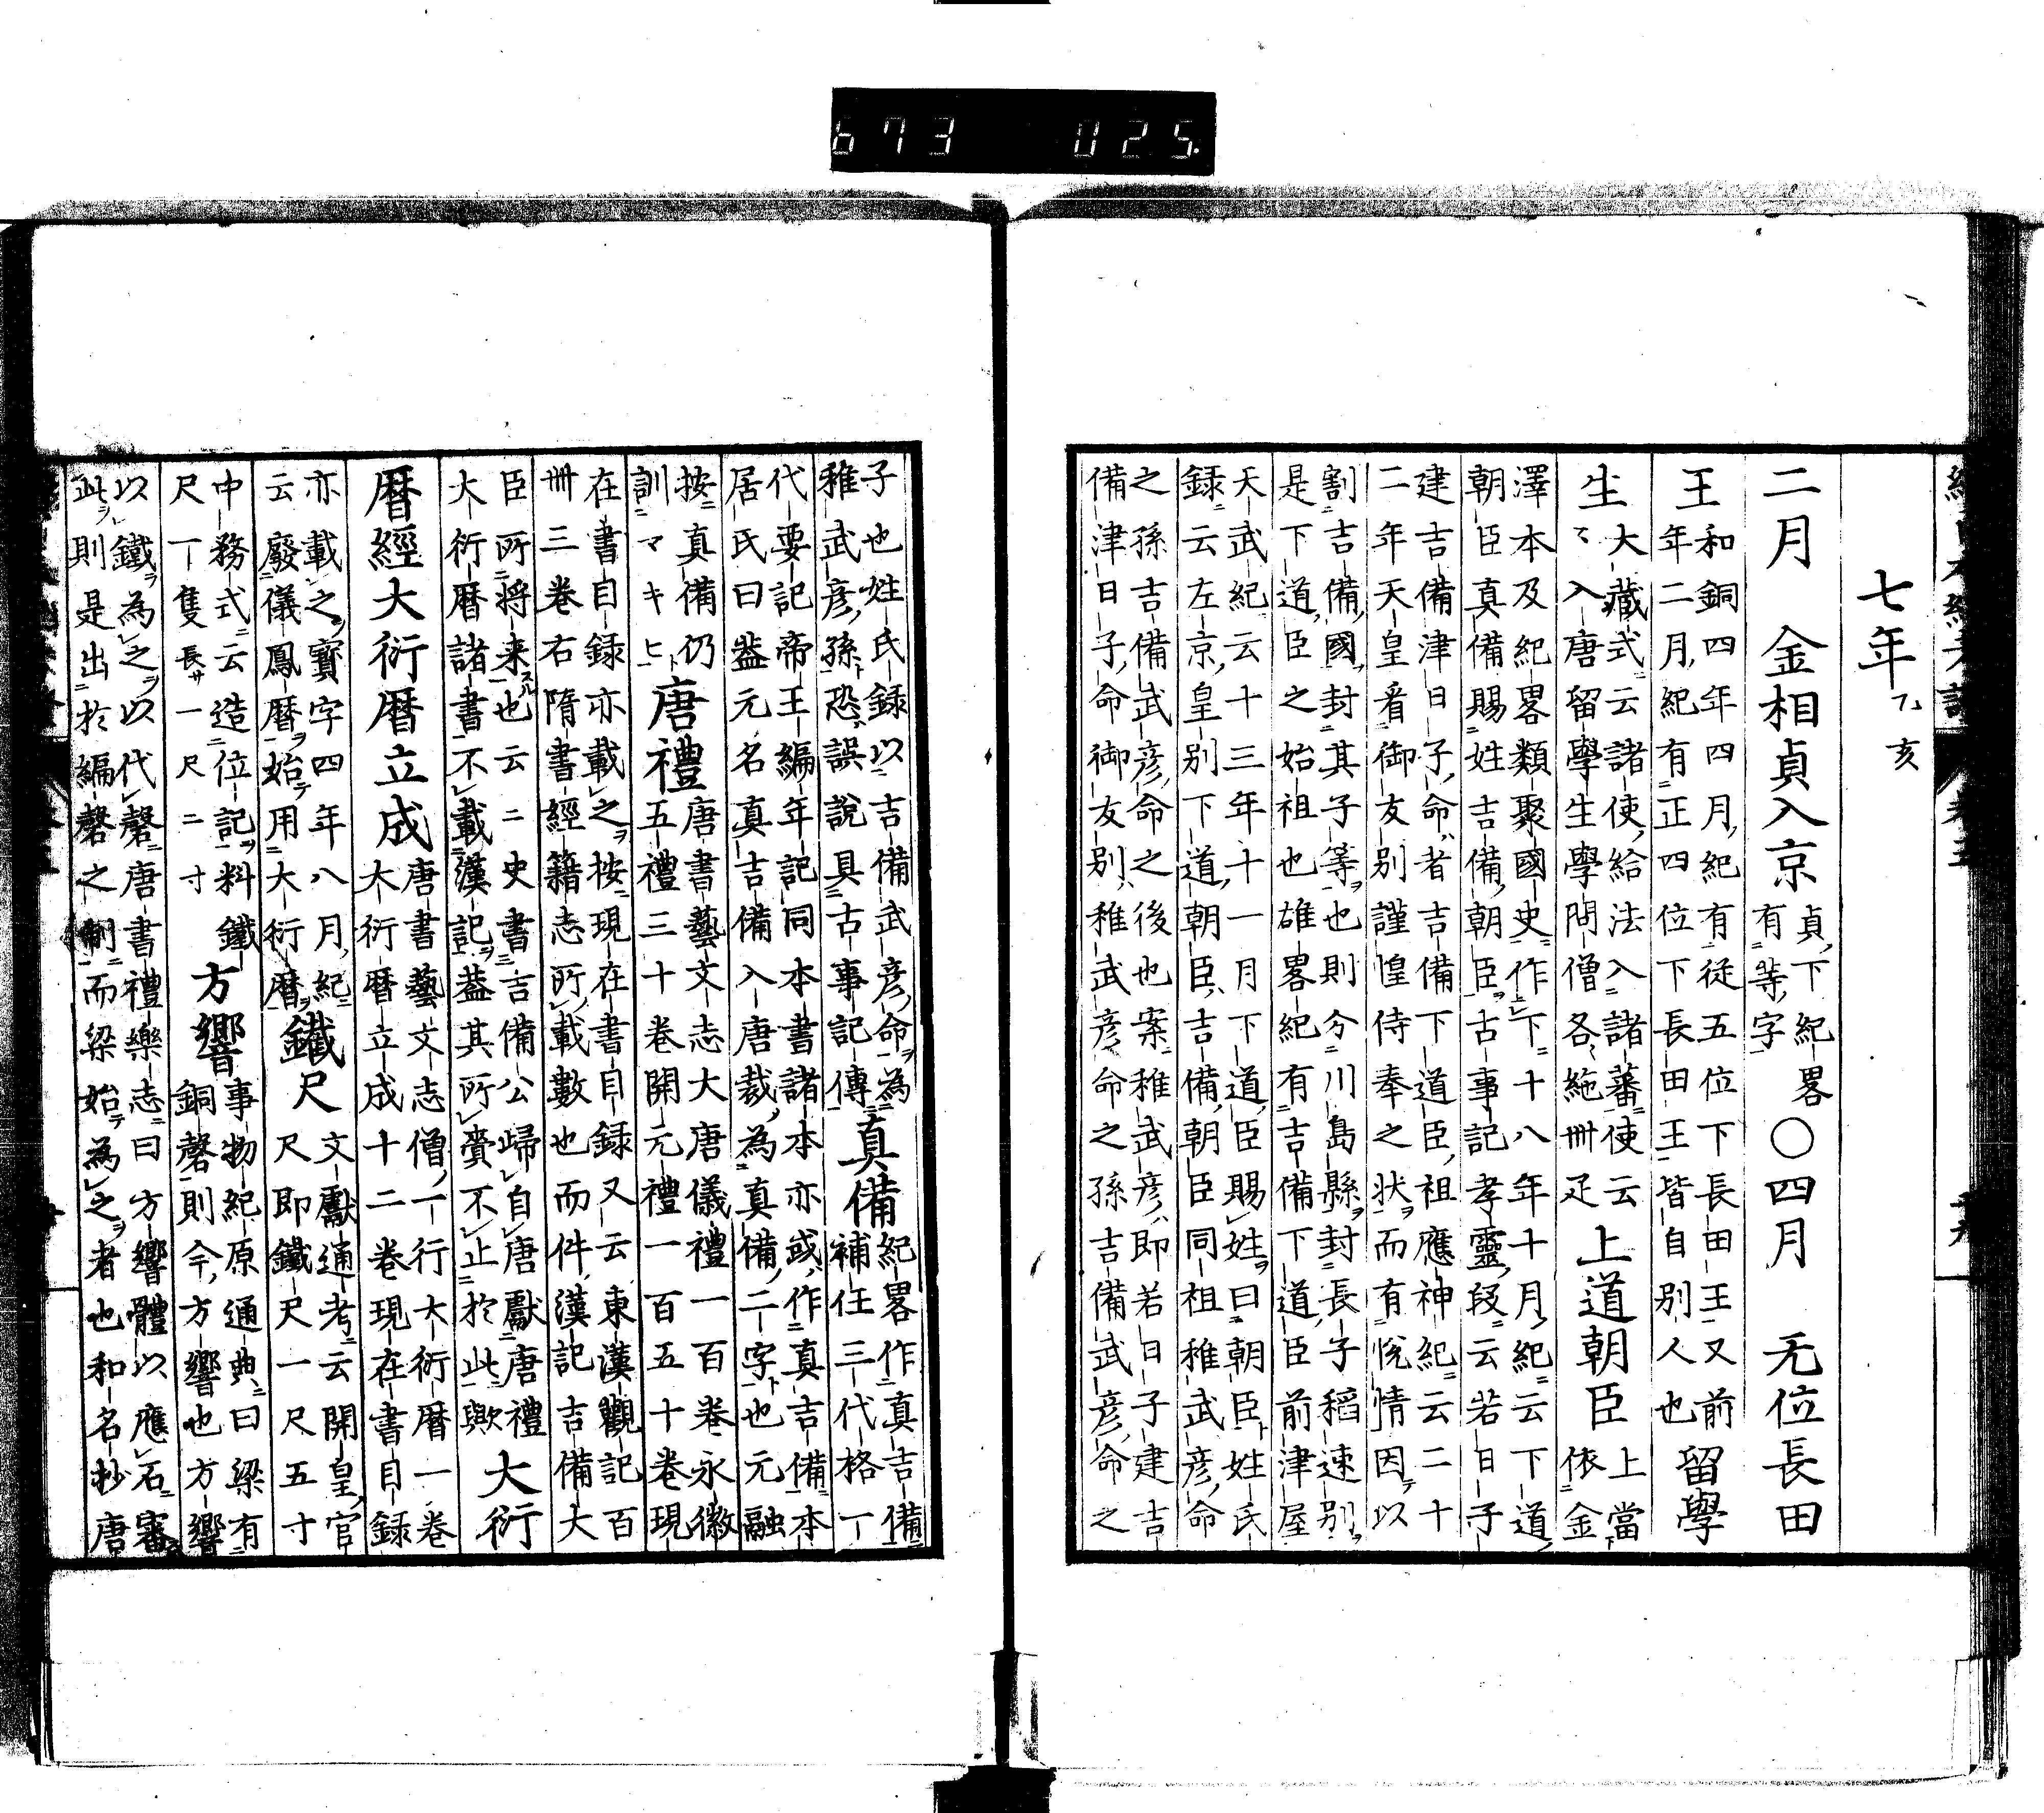 七年 乙亥
二月 金相貞入京
貞下紀畧
有等字
〇四月 无位長田
王
和銅四年四月紀有從五位下長田王又前
年二月紀有正四位下長田王皆自別人也
留學
生
大藏式云諸使給法入諸蕃使云
〻入唐留學生學問僧各絁卌疋
上道朝臣
上當
依金
澤本及紀畧類聚國史作下十八年十月紀云下道
朝臣真備賜姓吉備朝臣古事記孝靈段云若日子
建吉備津日子命者吉備下道臣祖應神紀云二十
二年天皇看御友別謹惶侍奉之狀而有悅情因以
割吉備國封其子等也則分川島縣封長子稻速別
是下道臣之始祖也雄畧紀有吉備下道臣前津屋
天武紀云十三年十一月下道臣賜姓曰朝臣姓氏
録云左京皇別下道朝臣吉備朝臣同祖稚武彦命
之孫吉備武彦命之後也案稚武彦即若日子建吉
備津日子命御友別稚武彦命之孫吉備武彦命之
子也姓氏録以吉備武彦命為
稚武彦孫恐誤說具古事記傳
真備
紀畧作真吉備
補任三代格一
代要記帝王編年記同本書諸本亦或作真吉備本
居氏曰葢元名真吉備入唐裁為真備二字也元融
按真備仍
訓マキヒ
唐禮
唐書藝文志大唐儀禮一百卷永徽
五禮三十卷開元禮一百五十卷現
在書目録亦載之按現在書目録又云東漢觀記百
卌三卷右隋書經籍志所載數也而件漢記吉備大
臣所将来也云二史書書吉備公歸自唐獻唐禮
大衍暦諸書不載漢記葢其所賷不止於此歟
大衍
暦經大衍暦立成
唐書藝文志僧一行大衍暦一卷
大衍暦立成十二卷現在書目録
亦載之寳字四年八月紀
云廢儀鳳暦始用大衍暦
鐵尺
文獻通考云開皇官
尺即鐵尺一尺五寸
中務式云造位記料鐵
尺一隻長一尺二寸
方響
事物紀原通典曰梁有
銅磬則今方響也方響
以鐵為之以代磬唐書禮樂志曰方響體以應石審
此則是出於編磬之制而梁始為之者也和名抄唐